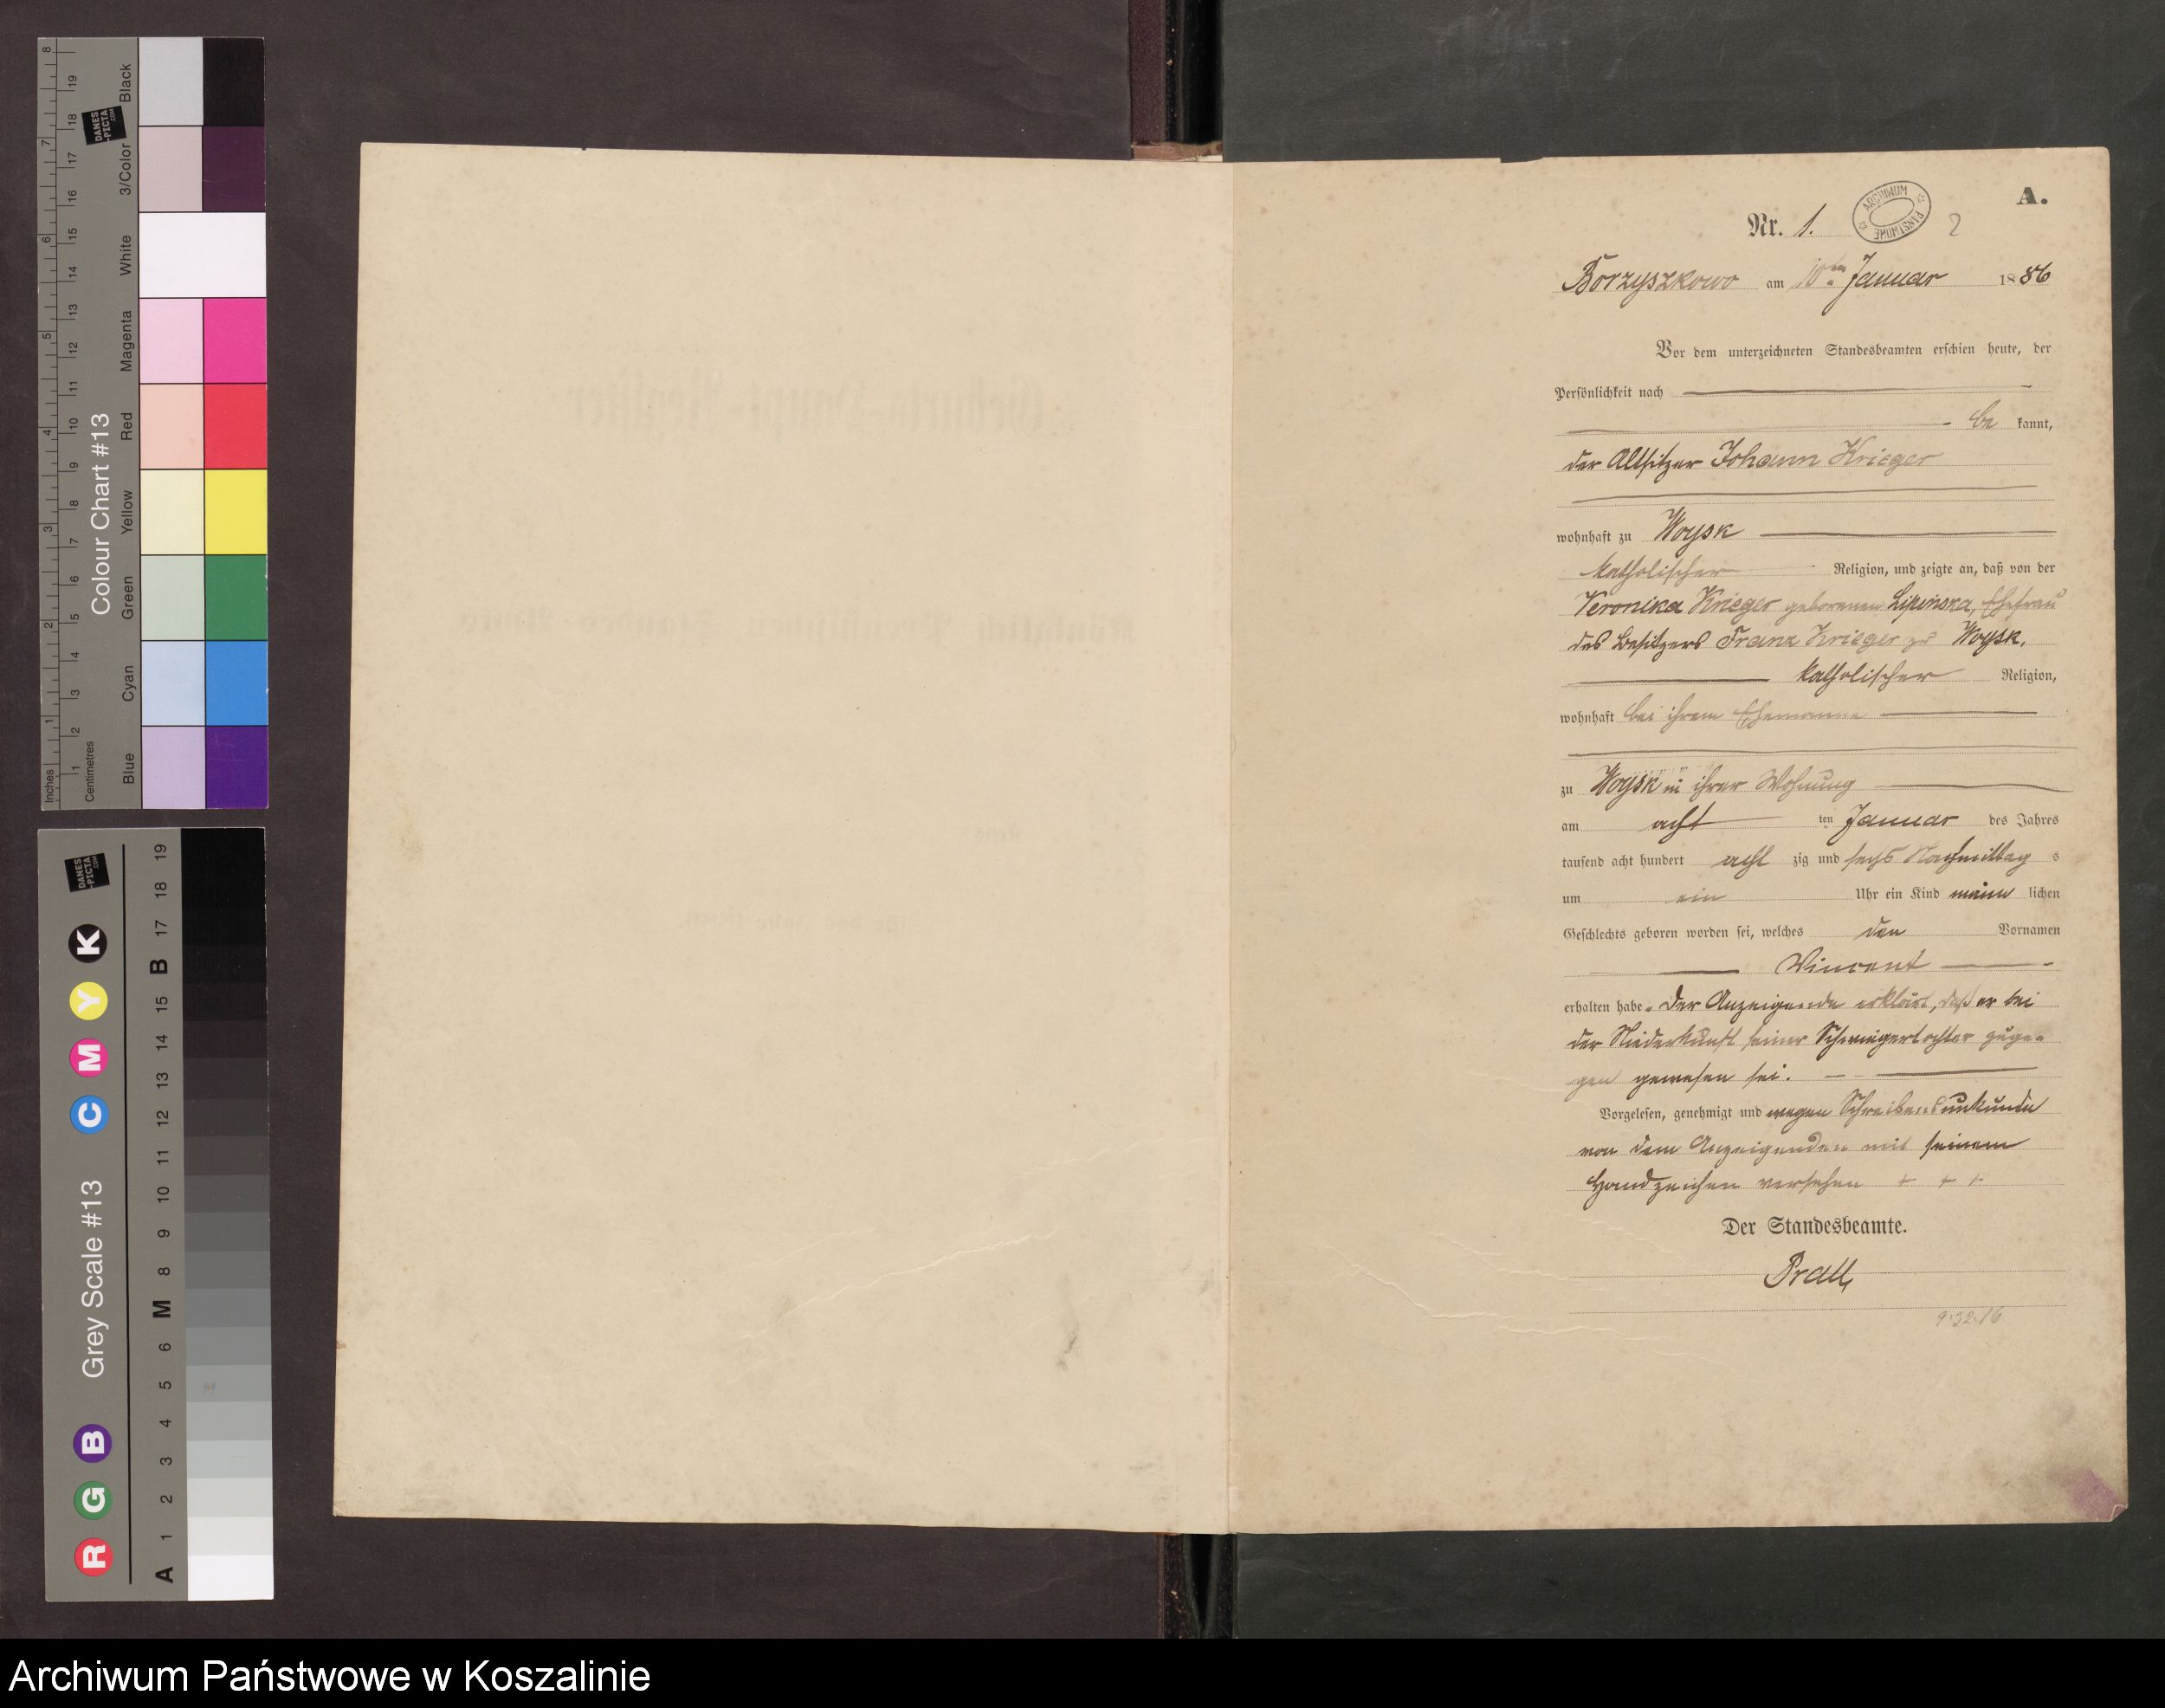 A.
Nr. 1.
ARCHIWUM PAŃSTWOWE
2
Borzyszkowo am 10ten Januar 1886
Vor dem unterzeichneten Standesbeamten erschien heute, der
Persönlichkeit nach
be kannt,
der Altsitzer Johann Krieger
wohnhaft zu Woysk
katholischer Religion, und zeigte an, daß von der
Veronika Krieger geborenen Lipinska, Ehefrau
des Besitzers Franz Krieger zu Woysk,
katholischer Religion,
wohnhaft bei ihrem Ehemanne
zu Woysk in ihrer Wohnung
am acht ten Januar des Jahres
tausend acht hundert acht zig und sechs Nachmittag s
um ein Uhr ein Kind männ lichen
Geschlechts geboren worden sei, welches den Vornamen
Vincent
erhalten habe. Der Anzeigende erklärt, daß er bei
der Niederkunft seiner Schwiegertochter zuge=
gen gewesen sei.
Vorgelesen, genehmigt und wegen Schreibensunkunde
von dem Anzeigenden mit seinem
Handzeichen versehen + + +
Der Standesbeamte.
Prall
Inches
Centimetres
Colour Chart #13
Blue Cyan Green Yellow Red Magenta White 3/Color Black
DANES-PICTA.COM
Grey Scale #13
R G B C M Y K
A 1 2 3 4 5 6 M 8 9 10 11 12 13 14 15 B 17 18 19
DANES-PICTA.COM
Archiwum Państwowe w Koszalinie